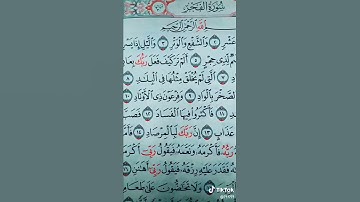 سُورَةُ الفَجْرِ
بِسْمِ اللَّهِ الرَّحْمَٰنِ الرَّحِيمِ
عَشْرٍ ٢ وَالشَّفْعِ وَالْوَتْرِ ٣ وَاللَّيْلِ إِذَا يَسْرِ
لِذِي حِجْرٍ ٥ أَلَمْ تَرَ كَيْفَ فَعَلَ رَبُّكَ
الَّتِي لَمْ يُخْلَقْ مِثْلُهَا فِي الْبِلَادِ ٨
الصَّخْرَ بِالْوَادِ ٩ وَفِرْعَوْنَ ذِي الْأَوْتَادِ ١٠
فَأَكْثَرُوا فِيهَا الْفَسَادَ ١٢ فَصَبَّ
عَذَابٍ ١٣ إِنَّ رَبَّكَ لَبِالْمِرْصَادِ ١٤
رَبُّهُ فَأَكْرَمَهُ وَنَعَّمَهُ فَيَقُولُ رَبِّي
فَقَدَرَ عَلَيْهِ رِزْقَهُ فَيَقُولُ رَبِّي أَهَانَنِ ١٦
وَلَا تَحَاضُّونَ عَلَى طَعَامِ
TikTok